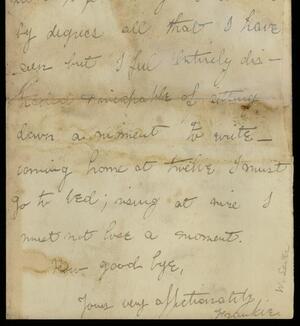 by degrees all that I have
seen but I feel entirely dis-
incapable of sitting
down a moment to write—
coming home at twelve I must
go to bed; rising at nine I
must not lose a moment.
Now good bye,
Yours very affectionately
Frankie.